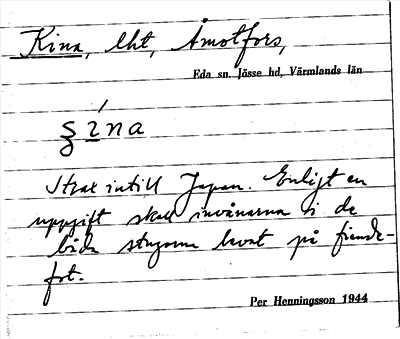 Kina, lht, Åmotfors,
Eda sn. Jösse hd, Värmlands län
ʂína
Strax intill Japan. Enligt en
uppgift skall invånarna i de
båda stugorna levat på fiende-
fot.
Per Henningsson 1944